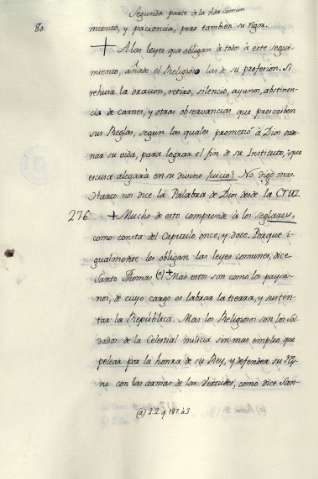 Segunda parte a la vida comun
80
miento, y paciencia, pero tambien su Regla.
+ A las leyes que obligan de todo à este segui-
miento, añade el Religioso las de su profesion. Si
rehusa la oracion, retiro, silencio, ayuno, abstinen-
cia de carnes, y otras observancias que prescriben
sus Reglas, segun las quales prometió à Dios
su vida, para lograr el fin de su Instituto, que
escusa alegarà en su divino juicio? No digo mas:
Harto nos dice la Palabra de Dios desde la CRUZ.
276 + Mucho de esto comprende à los seglares,
como consta del Capitulo once, y doce. Porque i-
gualmente les obligan las leyes comunes, dice
Santo Thomas (a) + Mas estos son como los paysa-
nos, de cuyo cargo es labrar la tierra, y susten-
tar la Republica. Mas los Religiosos son los Sol-
dados de la Celestial milicia sin mas empleo, que
pelear por la honra de su Rey, y defender su Rey-
no con las armas de las virtudes, como dice San-
(a) 2.2. q. 187. a 3